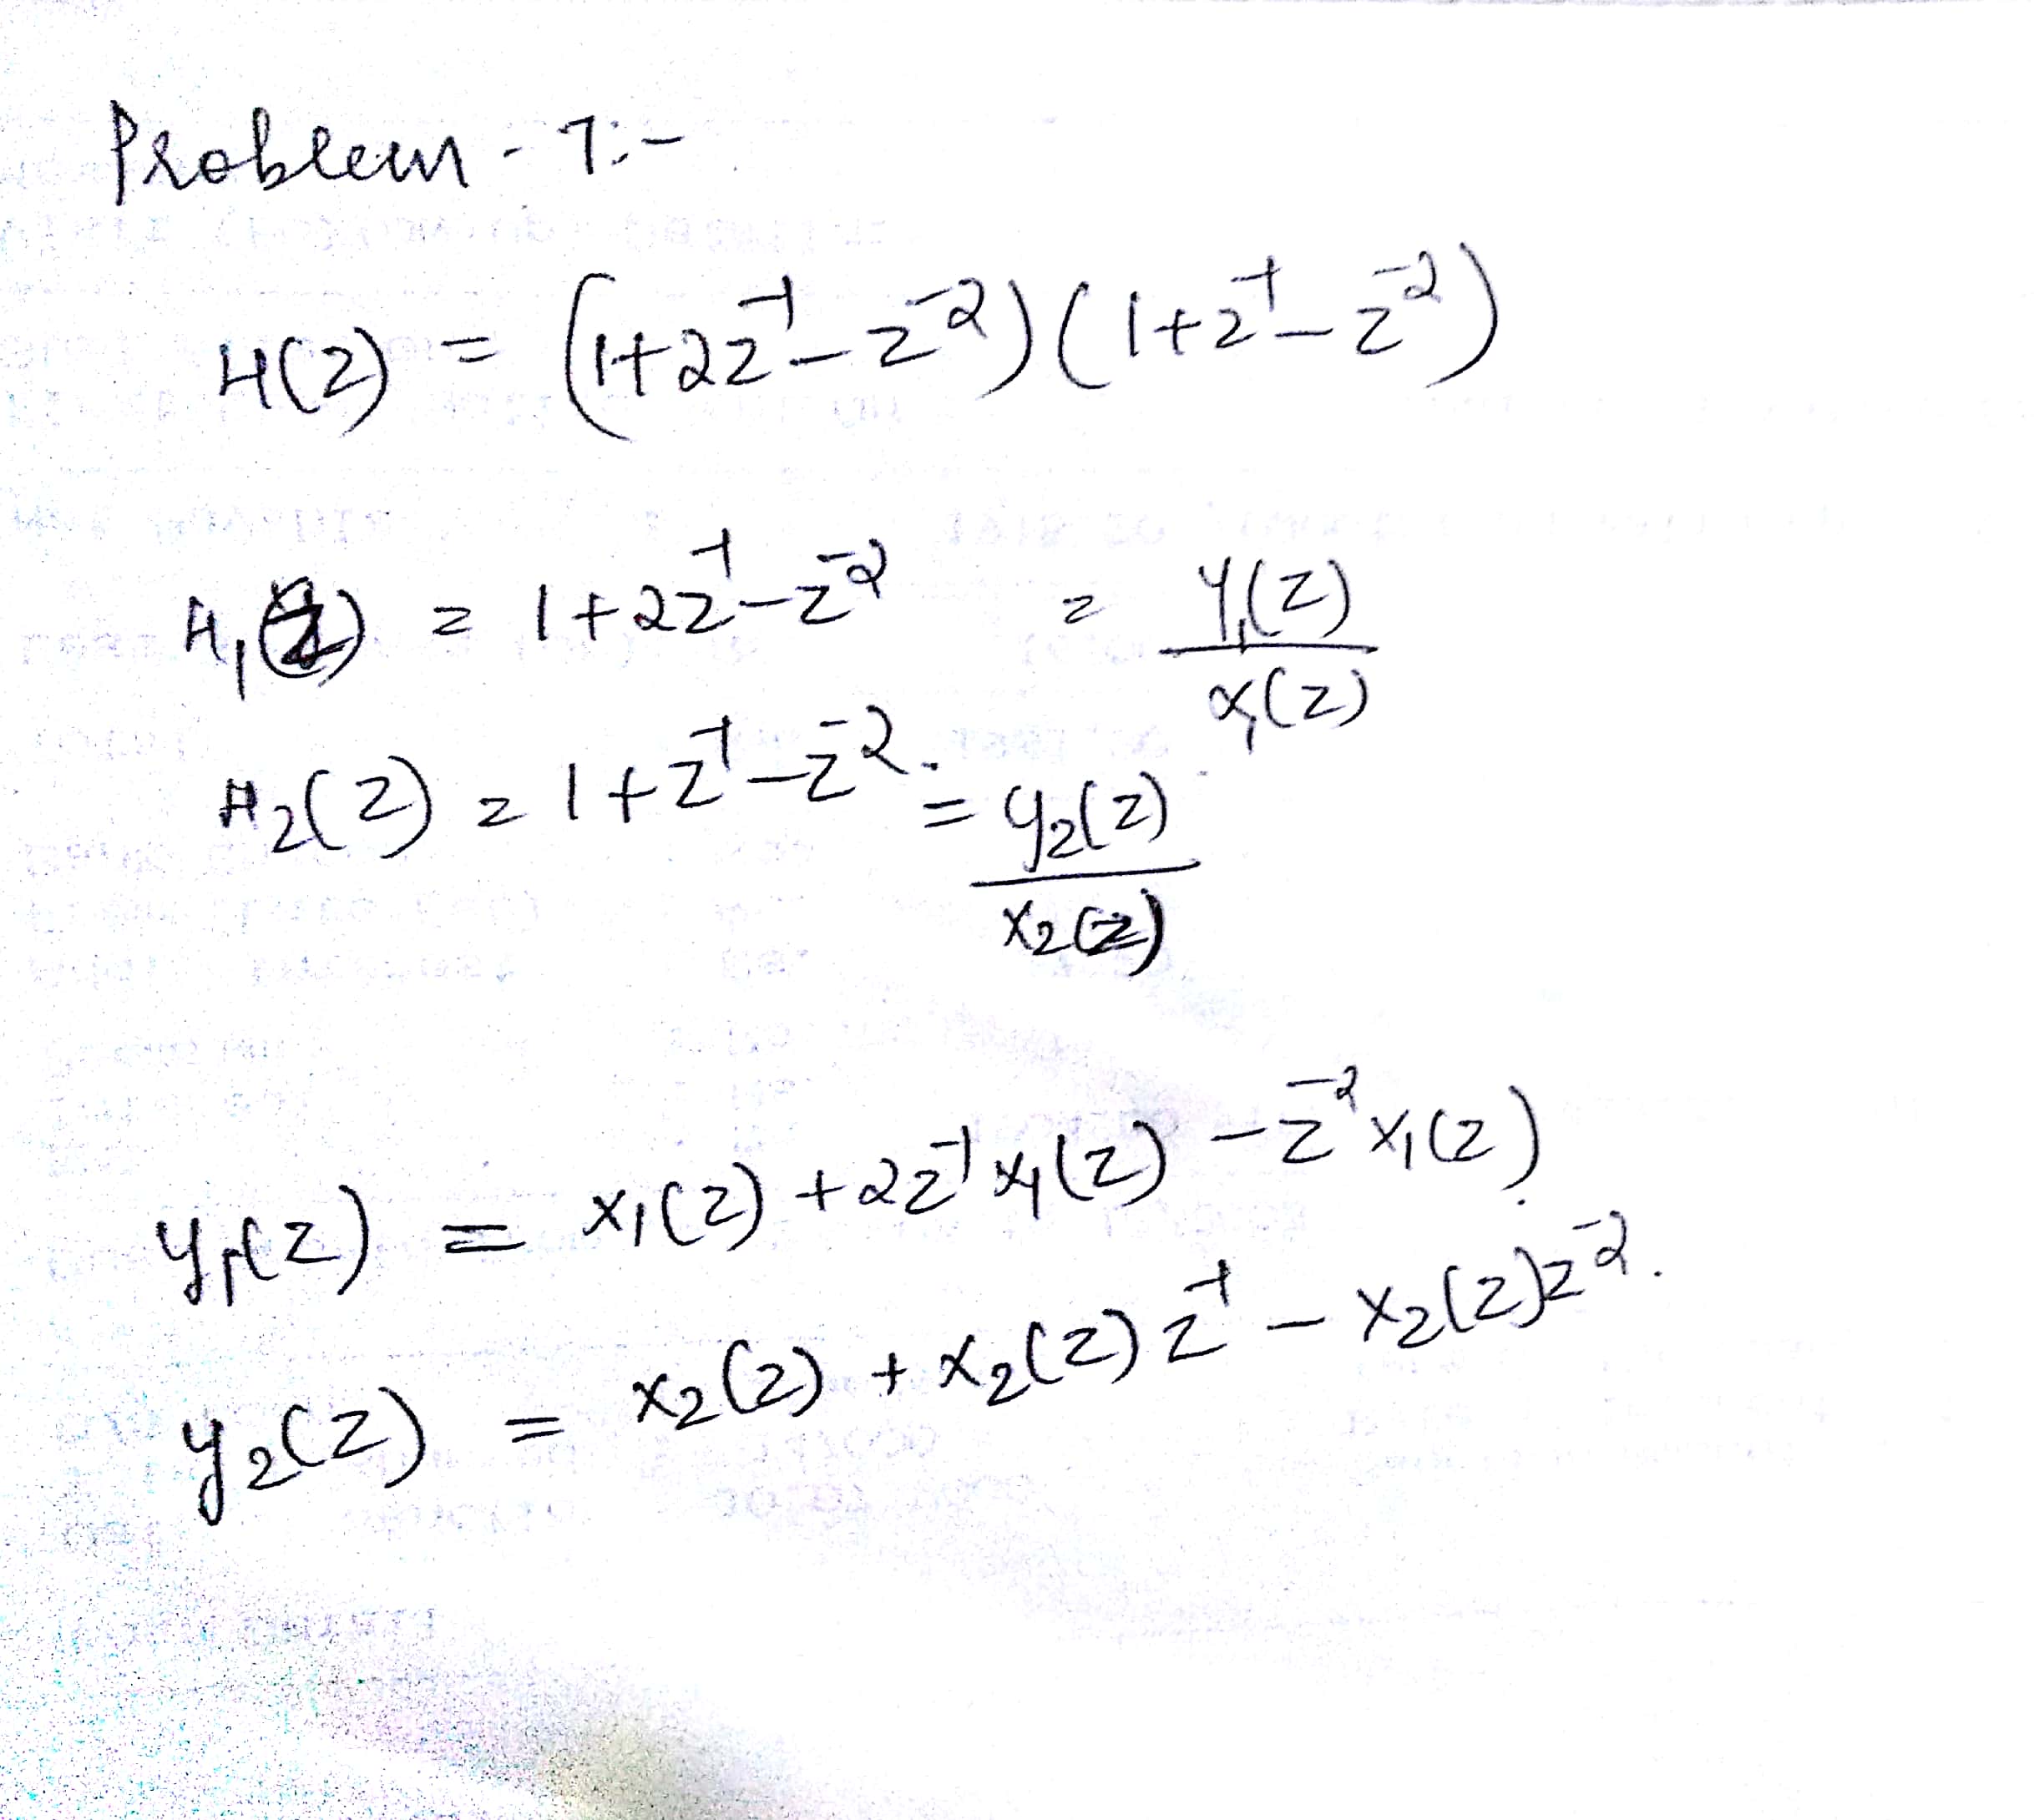 Problem - 7:-
H(z) = (1+2z⁻¹-z⁻²)(1+z⁻¹-z⁻²)
H₁(z) = 1+2z⁻¹-z⁻² = Y₁(z)/X₁(z)
H₂(z) = 1+z⁻¹-z⁻². = Y₂(z)/X₂(z)
Y₁(z) = X₁(z) +2z⁻¹X₁(z) -z⁻²X₁(z).
Y₂(z) = X₂(z) + X₂(z)z⁻¹ - X₂(z)z⁻².